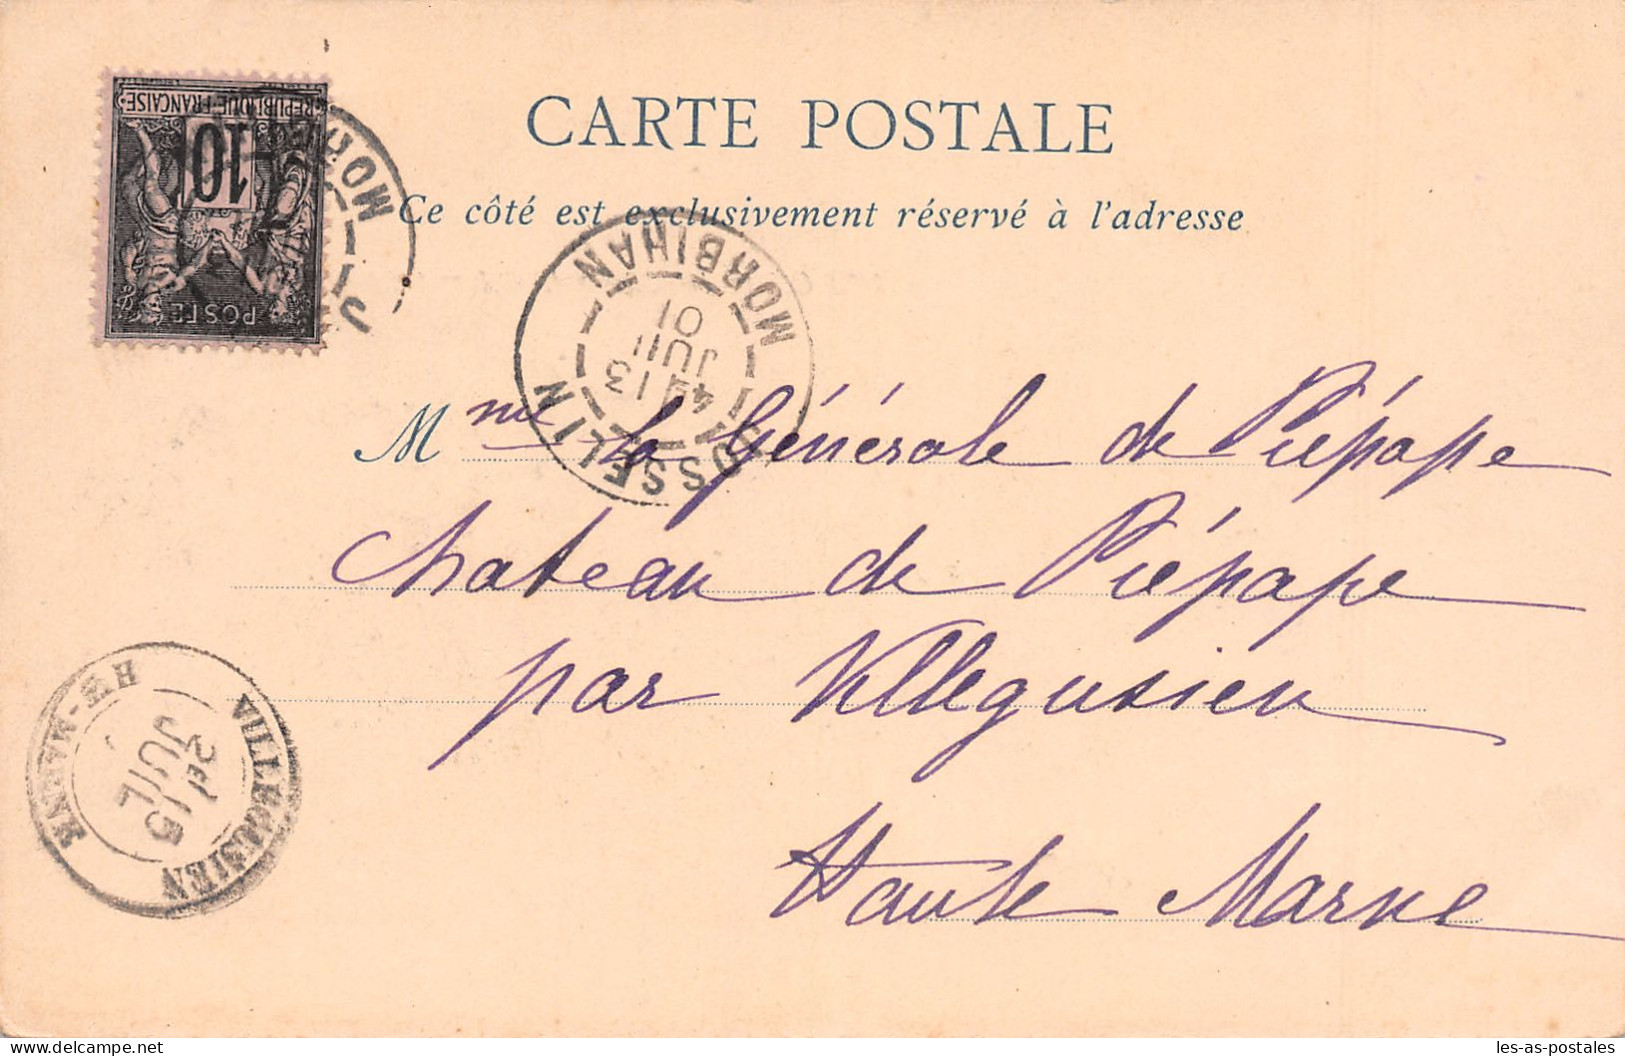 CARTE POSTALE
Ce côté est exclusivement réservé à l'adresse
RÉPUBLIQUE FRANÇAISE
10
POSTE
MOR
J
JOSSELIN
MORBIHAN
4E 13
JUIL
01
Mme la Générale de Piépape
Chateau de Piépape
par Villegusien
Haute Marne
VILLEGUSIEN
HTE-MARNE
2E 15
JUIL
les-as-postales